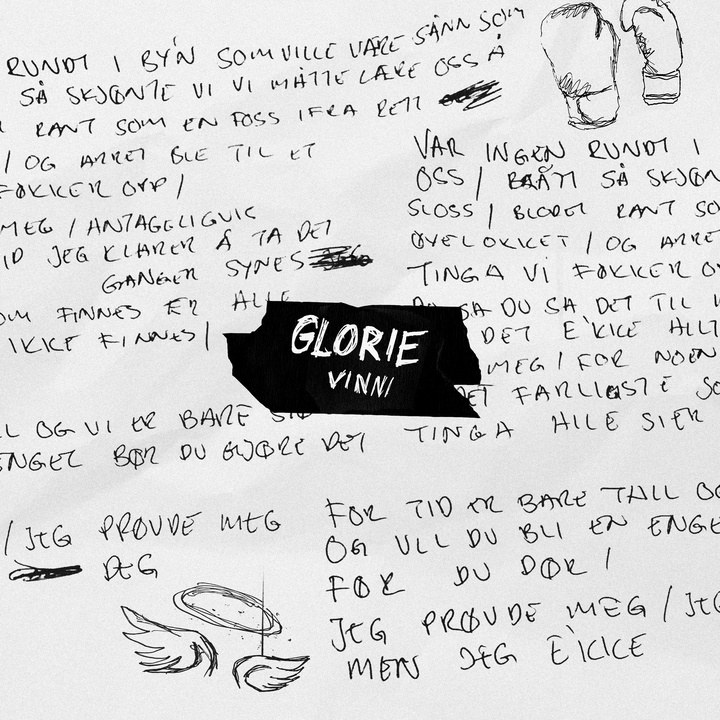 RUNDT I BY'N SOM VILLE VÆRE SÅNN SOM
SÅ SKJØNTE VI VI MÅTTE LÆRE OSS Å
RANT SOM EN FOSS IFRA RETT
/ OG ARRET BLE TIL ET
FØKKER OPP /
MEG / ANTAGELIGVIS
TID JEG KLARER Å TA DET
GANGER SYNES
SOM FINNES ER ALLE
IKKE FINNES /
GLORIE
VINNI
TALL OG VI ER BARE
ENGEL BØR DU GJØRE DET
/ JEG PRØVDE MEG
DEG
VAR INGEN RUNDT I
OSS / BRÅTT SÅ SKJØN
SLOSS / BLODET RANT SO
ØYELOKKET / OG ARRE
TINGA VI FØKKER O
SA DU SA DET TIL
DET E'KKE ALLT
MEG / FOR NOEN
DET FARLIGSTE SO
TINGA ALLE SIER
FOR TID ER BARE TALL OG
OG VIL DU BLI EN ENGE
FØR DU DØR /
JEG PRØVDE MEG / JEG
MEN JEG E'KKE